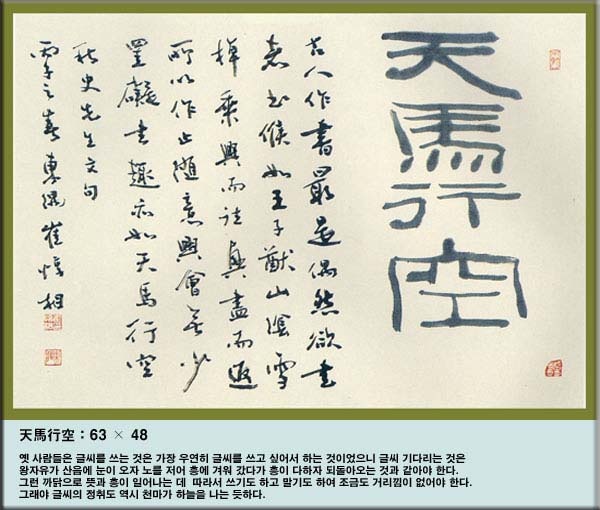 天馬行空
古人作書最是偶然欲書
者書候如王子猷山陰雪
棹乘興而往興盡而返
所以作止隨意興會無少
罣礙書趣亦如天馬行空
秋史先生文句
丙子之春東崔惇相
天馬行空 : 63 × 48
옛 사람들은 글씨를 쓰는 것은 가장 우연히 글씨를 쓰고 싶어서 하는 것이었으니 글씨 기다리는 것은
왕자유가 산음에 눈이 오자 노를 저어 흥에 겨워 갔다가 흥이 다하자 되돌아오는 것과 같아야 한다.
그런 까닭으로 뜻과 흥이 일어나는 데 따라서 쓰기도 하고 말기도 하여 조금도 거리낌이 없어야 한다.
그래야 글씨의 정취도 역시 천마가 하늘을 나는 듯하다.